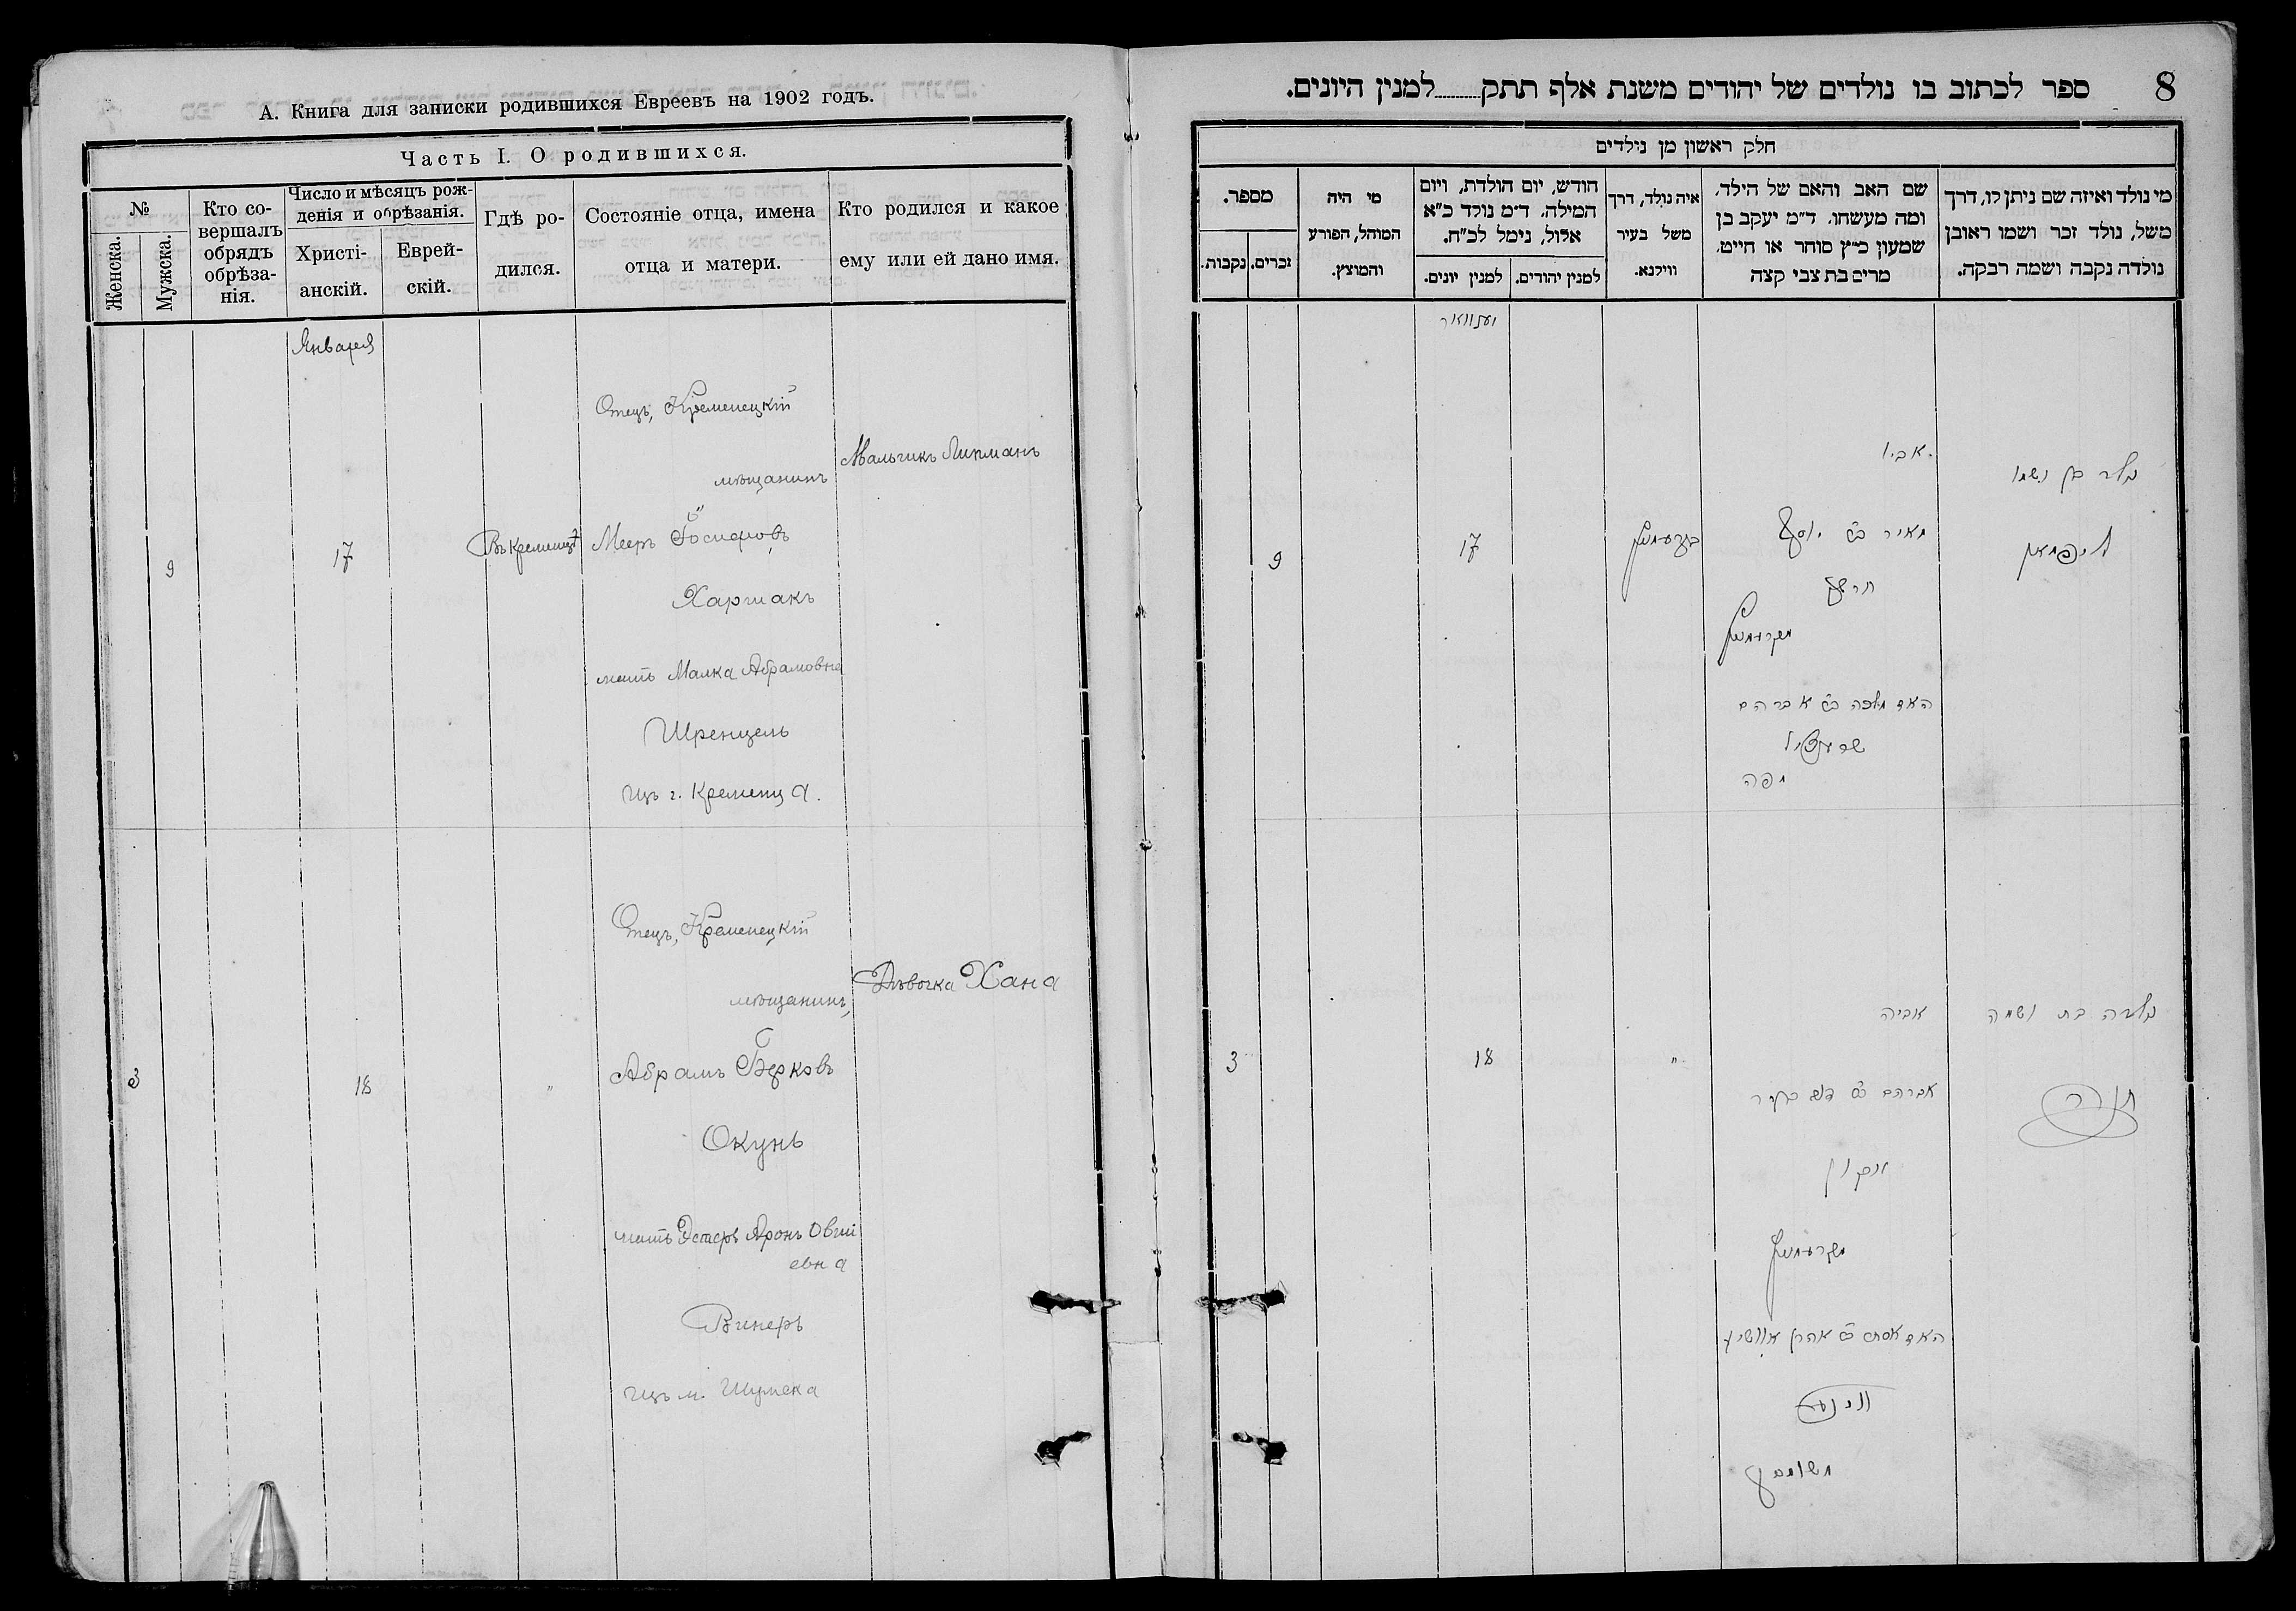 А. Книга для записки родившихся Евреевъ на 1902 годъ.
Часть I. О родившихся.
№
Женска.
Мужска.
Кто со-
вершалъ
обрядъ
обрѣза-
нія.
Число и мѣсяцъ рож-
денія и обрѣзанія.
Христі-
анскій.
Еврей-
скій.
Гдѣ ро-
дился.
Состояніе отца, имена
отца и матери.
Кто родился и какое
ему или ей дано имя.
Января
9
17
Въ Кременцѣ
Отецъ, Кременецкій
мѣщанинъ
Мееръ Іосифовъ
Харшакъ
мать Малка Абрамовна
Шренцель
изъ г. Кременца.
Мальчикъ Липманъ
3
18
"
Отецъ, Кременецкій
мѣщанинъ,
Абрамъ Берковъ
Окунь
мать Эстеръ Аронъ Овши
евна
Винеръ
изъ м. Шумска
Дѣвочка Хана
8
ספר לכתוב בו נולדים של יהודים משנת אלף תתק........למנין היונים.
חלק ראשון מן נולדים
מי נולד ואיזה שם ניתן לו, דרך
משל, נולד זכר ושמו ראובן
נולדה נקבה ושמה רבקה.
שם האב והאם של הילד,
ומה מעשהו. ד״מ יעקב בן
שמעון כ״ץ סוחר או חייט,
מרים בת צבי קצה
איה נולד, דרך
משל בעיר
ווילנא.
חודש, יום הולדת, ויום
המילה, ד״מ נולד כ״א
אלול, נימל לכ״ח.
למנין יהודים.
למנין יונים.
מי היה
המוהל, הפורע
והמוצץ.
מספר.
זכרים.
נקבות.
יענוואר
נולד בן ושמו
ליפמאן
אביו
מאיר ב״ר יוסף
מקרעמעניץ
האם מלכה ב״ר אברהם
שרענציל
מפה
17
9
נולדה בת ושמה
חנה
אביה
אברהם ב״ר
אקון
מקרעמעניץ
ווינער
משומסק
"
18
3